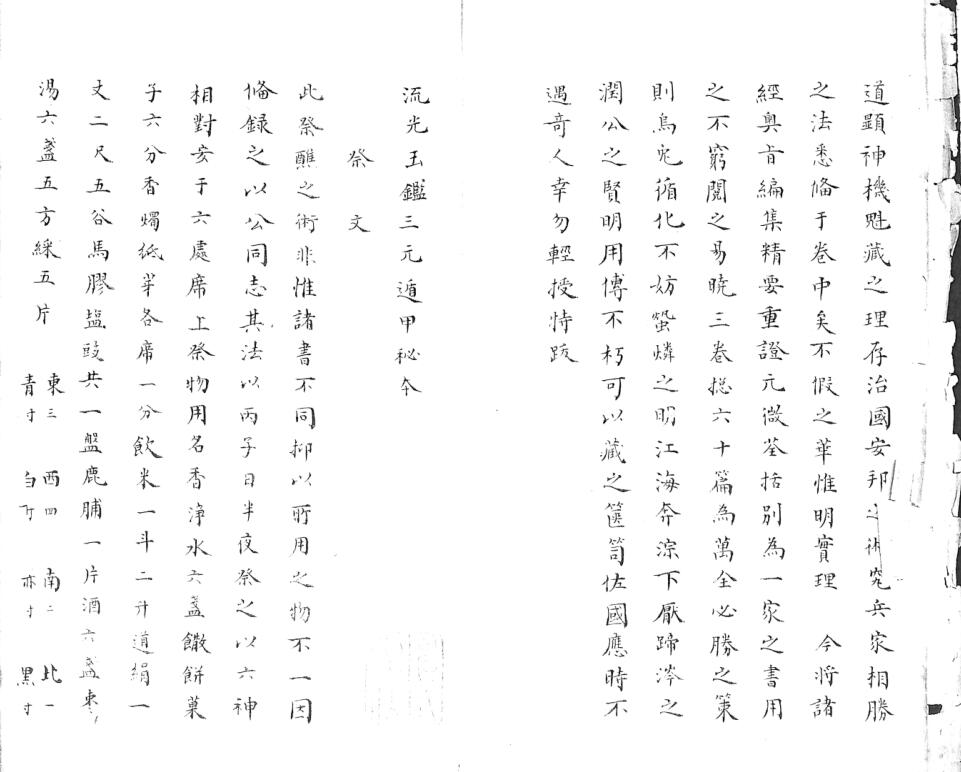 道顯神機魁藏之理存治國安邦之術究兵家相勝
之法悉俻于卷中矣不假之華惟明實理　今將諸
經奥旨編集精要重證元微荃括別為一家之書用
之不窮閱之易曉三卷摠六十篇為萬全必勝之策
則烏兎循化不妨螢燐之明江海奔淙下厭蹄涔之
潤公之賢明用傳不朽可以藏之篋笥佐國應時不
遇竒人幸勿輕授恃跋
流光玉鑑三元遁甲秘本
祭文
此祭醮之術非惟諸書不同抑以所用之物不一因
俻録之以公同志其法以丙子日半夜祭之以六神
相對安于六處席上祭物用名香淨水六盞饊餅菓
子六分香燭紙芋各席一分飲米一斗二升道絹一
丈二尺五谷馬膠塩豉共一盤鹿脯一片酒六盞棗
湯六盞五方綵五片
東三 西四 南二 北一
青寸 白 赤寸 黑寸